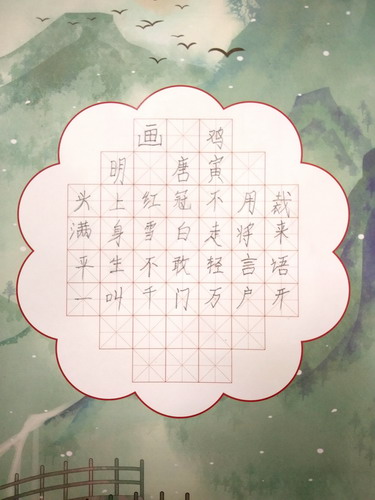 画 鸡
明 唐寅
头上红冠不用裁
满身雪白走将来
平生不敢轻言语
一叫千门万户开